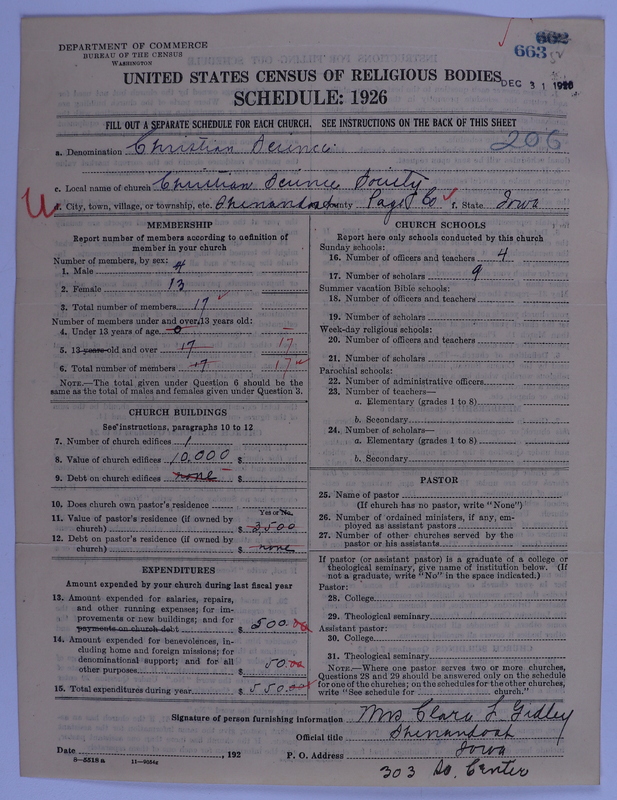 662
663
DEPARTMENT OF COMMERCE
BUREAU OF THE CENSUS
WASHINGTON
UNITED STATES CENSUS OF RELIGIOUS BODIES
DEC 31 1926
SCHEDULE: 1926
FILL OUT A SEPARATE SCHEDULE FOR EACH CHURCH. SEE INSTRUCTIONS ON THE BACK OF THIS SHEET
206
a. Denomination Christian Science
c. Local name of church Christian Science Society
City, town, village, or township, etc. Shenandoah County Page Co f. State Iowa
MEMBERSHIP
Report number of members according to definition of member in your church
Number of members, by sex:
1. Male 4
2. Female 13
3. Total number of members 17
Number of members under and over 13 years old:
4. Under 13 years of age 0 —
5. 13 years old and over 17 17
6. Total number of members 17 17
NOTE.—The total given under Question 6 should be the same as the total of males and females given under Question 3.
CHURCH BUILDINGS
See instructions, paragraphs 10 to 12
7. Number of church edifices 1
8. Value of church edifices 10,000 $
9. Debt on church edifices none $
10. Does church own pastor's residence
Yes or No
11. Value of pastor's residence (if owned by church) $ 3500
12. Debt on pastor's residence (if owned by church) $ none
EXPENDITURES
Amount expended by your church during last fiscal year
13. Amount expended for salaries, repairs, and other running expenses; for improvements or new buildings; and for payments on church debt $ 500.00
14. Amount expended for benevolences, including home and foreign missions; for denominational support; and for all other purposes $ 50.00
15. Total expenditures during year $ 550.00
CHURCH SCHOOLS
Report here only schools conducted by this church
Sunday schools:
16. Number of officers and teachers 4
17. Number of scholars 9
Summer vacation Bible schools:
18. Number of officers and teachers
19. Number of scholars
Week-day religious schools:
20. Number of officers and teachers
21. Number of scholars
Parochial schools:
22. Number of administrative officers
23. Number of teachers—
a. Elementary (grades 1 to 8)
b. Secondary
24. Number of scholars—
a. Elementary (grades 1 to 8)
b. Secondary
PASTOR
25. Name of pastor
(If church has no pastor, write "None")
26. Number of ordained ministers, if any, employed as assistant pastors
27. Number of other churches served by the pastor or his assistants
If pastor (or assistant pastor) is a graduate of a college or theological seminary, give name of institution below. (If not a graduate, write "No" in the space indicated.)
Pastor:
28. College
29. Theological seminary
Assistant pastor:
30. College
31. Theological seminary
NOTE.—Where one pastor serves two or more churches, Questions 28 and 29 should be answered only on the schedule for one of the churches; on the schedules for the other churches, write "See schedule for church."
Signature of person furnishing information Mrs Clara L. Gidley
Official title Shenandoah
Date , 192 P. O. Address Iowa
8—5518 a
303 So. Center